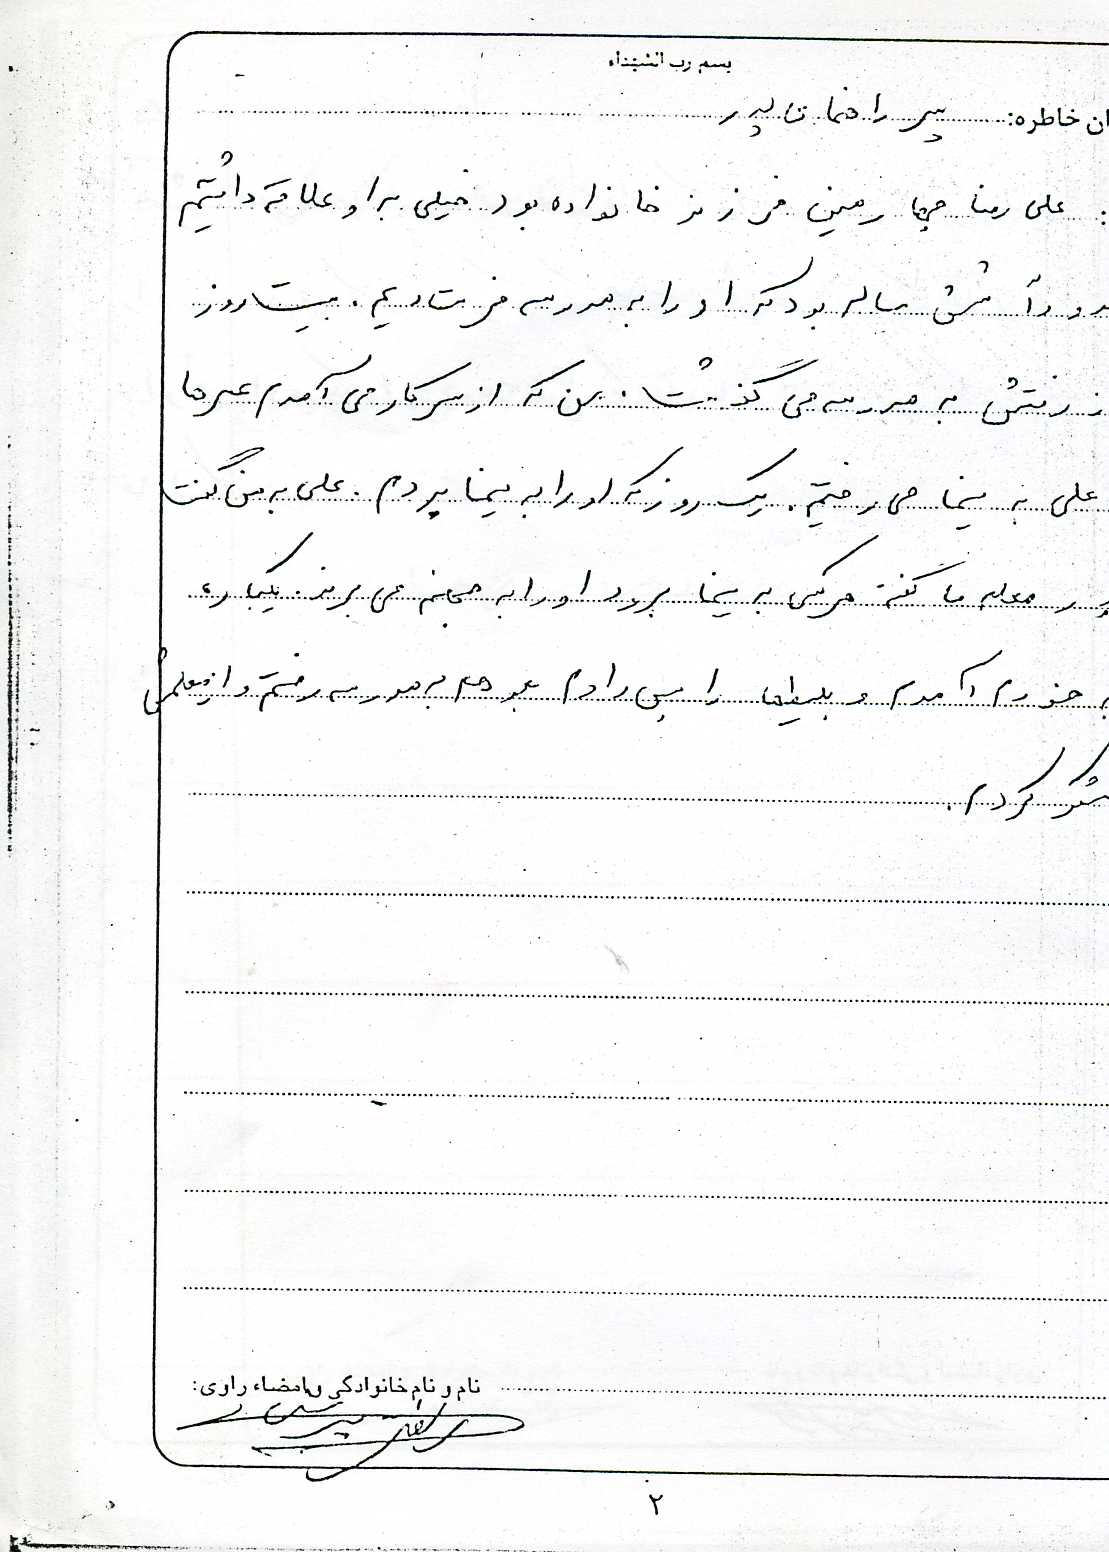 بسم رب الشهداء
ان خاطره: پسر راهنمای پدر
: علی رضا چهارمین فرزند خانواده بود خیلی به او علاقه داشتیم
شش ساله بود که او را به مدرسه فرستادیم . بیست روز
ز رفتنش به مدرسه می گذشت . من که از سر کار می آمدم عصرها
علی به سینما می رفتیم . یک روز که او را به سینما بردم . علی به من گفت
معلم ما گفته هر کس به سینما برود او را به جهنم می برند . یکباره
به خودم آمدم و بلیطها را پس دادم بعد هم به مدرسه رفتم و از معلمش
تشکر کردم .
نام و نام خانوادگی و امضاء راوی:
۲